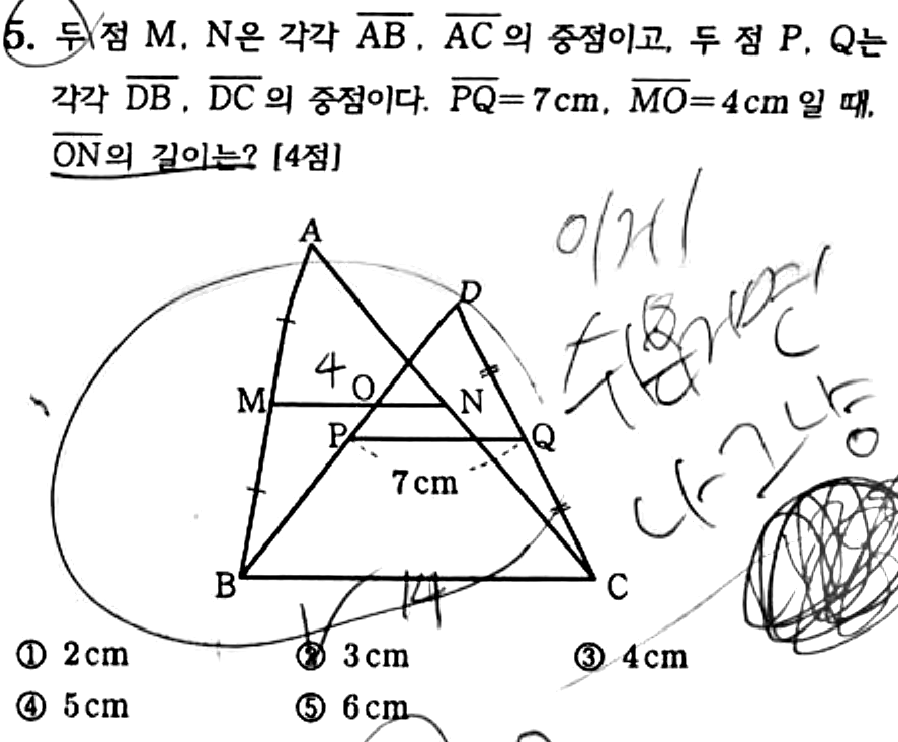 5. 두 점 M, N은 각각 AB, AC의 중점이고, 두 점 P, Q는
각각 DB, DC의 중점이다. PQ=7cm, MO=4cm일 때,
ON의 길이는? [4점]
이게
나그냥
A
D
4
M
O
N
P
Q
7cm
B
14
C
① 2cm
② 3cm
③ 4cm
④ 5cm
⑤ 6cm